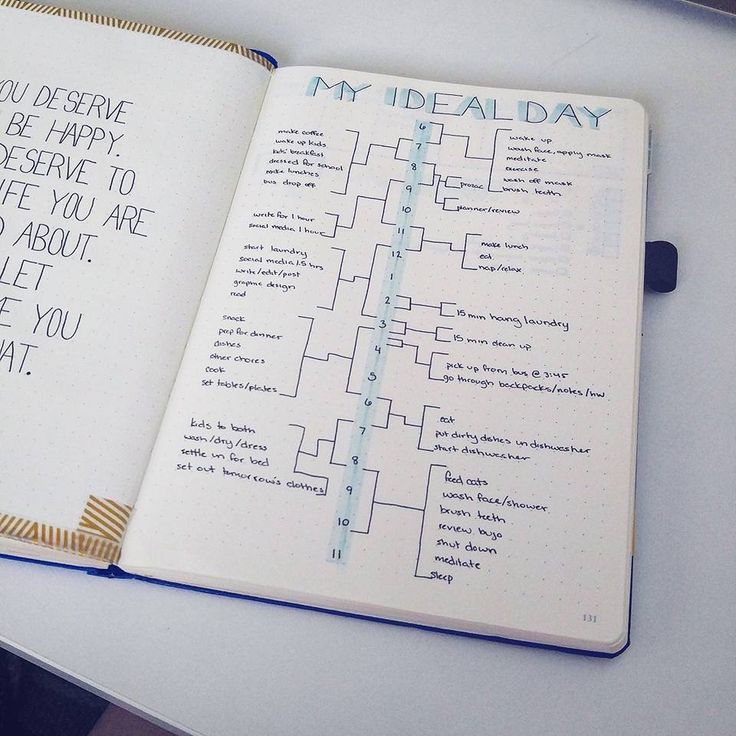 YOU DESERVE
BE HAPPY.
DESERVE TO
LIFE YOU ARE
ABOUT.
LET
YOU
MY IDEAL DAY
make coffee
wake up kids
kids' breakfast
dressed for school
make lunches
bus drop off
write for 1 hour
social media 1 hour
start laundry
social media 1.5 hrs
write/edit/post
graphic design
read
snack
prep for dinner
dishes
other chores
cook
set tables/plates
kids to bath
wash/dry/dress
settle in for bed
set out tomorrow's clothes
6
7
8
9
10
11
12
1
2
3
4
5
6
7
8
9
10
11
wake up
wash face, apply mask
meditate
exercise
wash off mask
brush teeth
prozac
planner/review
make lunch
eat
nap/relax
15 min hang laundry
15 min clean up
pick up from bus @ 3:45
go through backpacks/notes/hw
eat
put dirty dishes in dishwasher
start dishwasher
feed cats
wash face/shower
brush teeth
review bujo
shut down
meditate
sleep
131